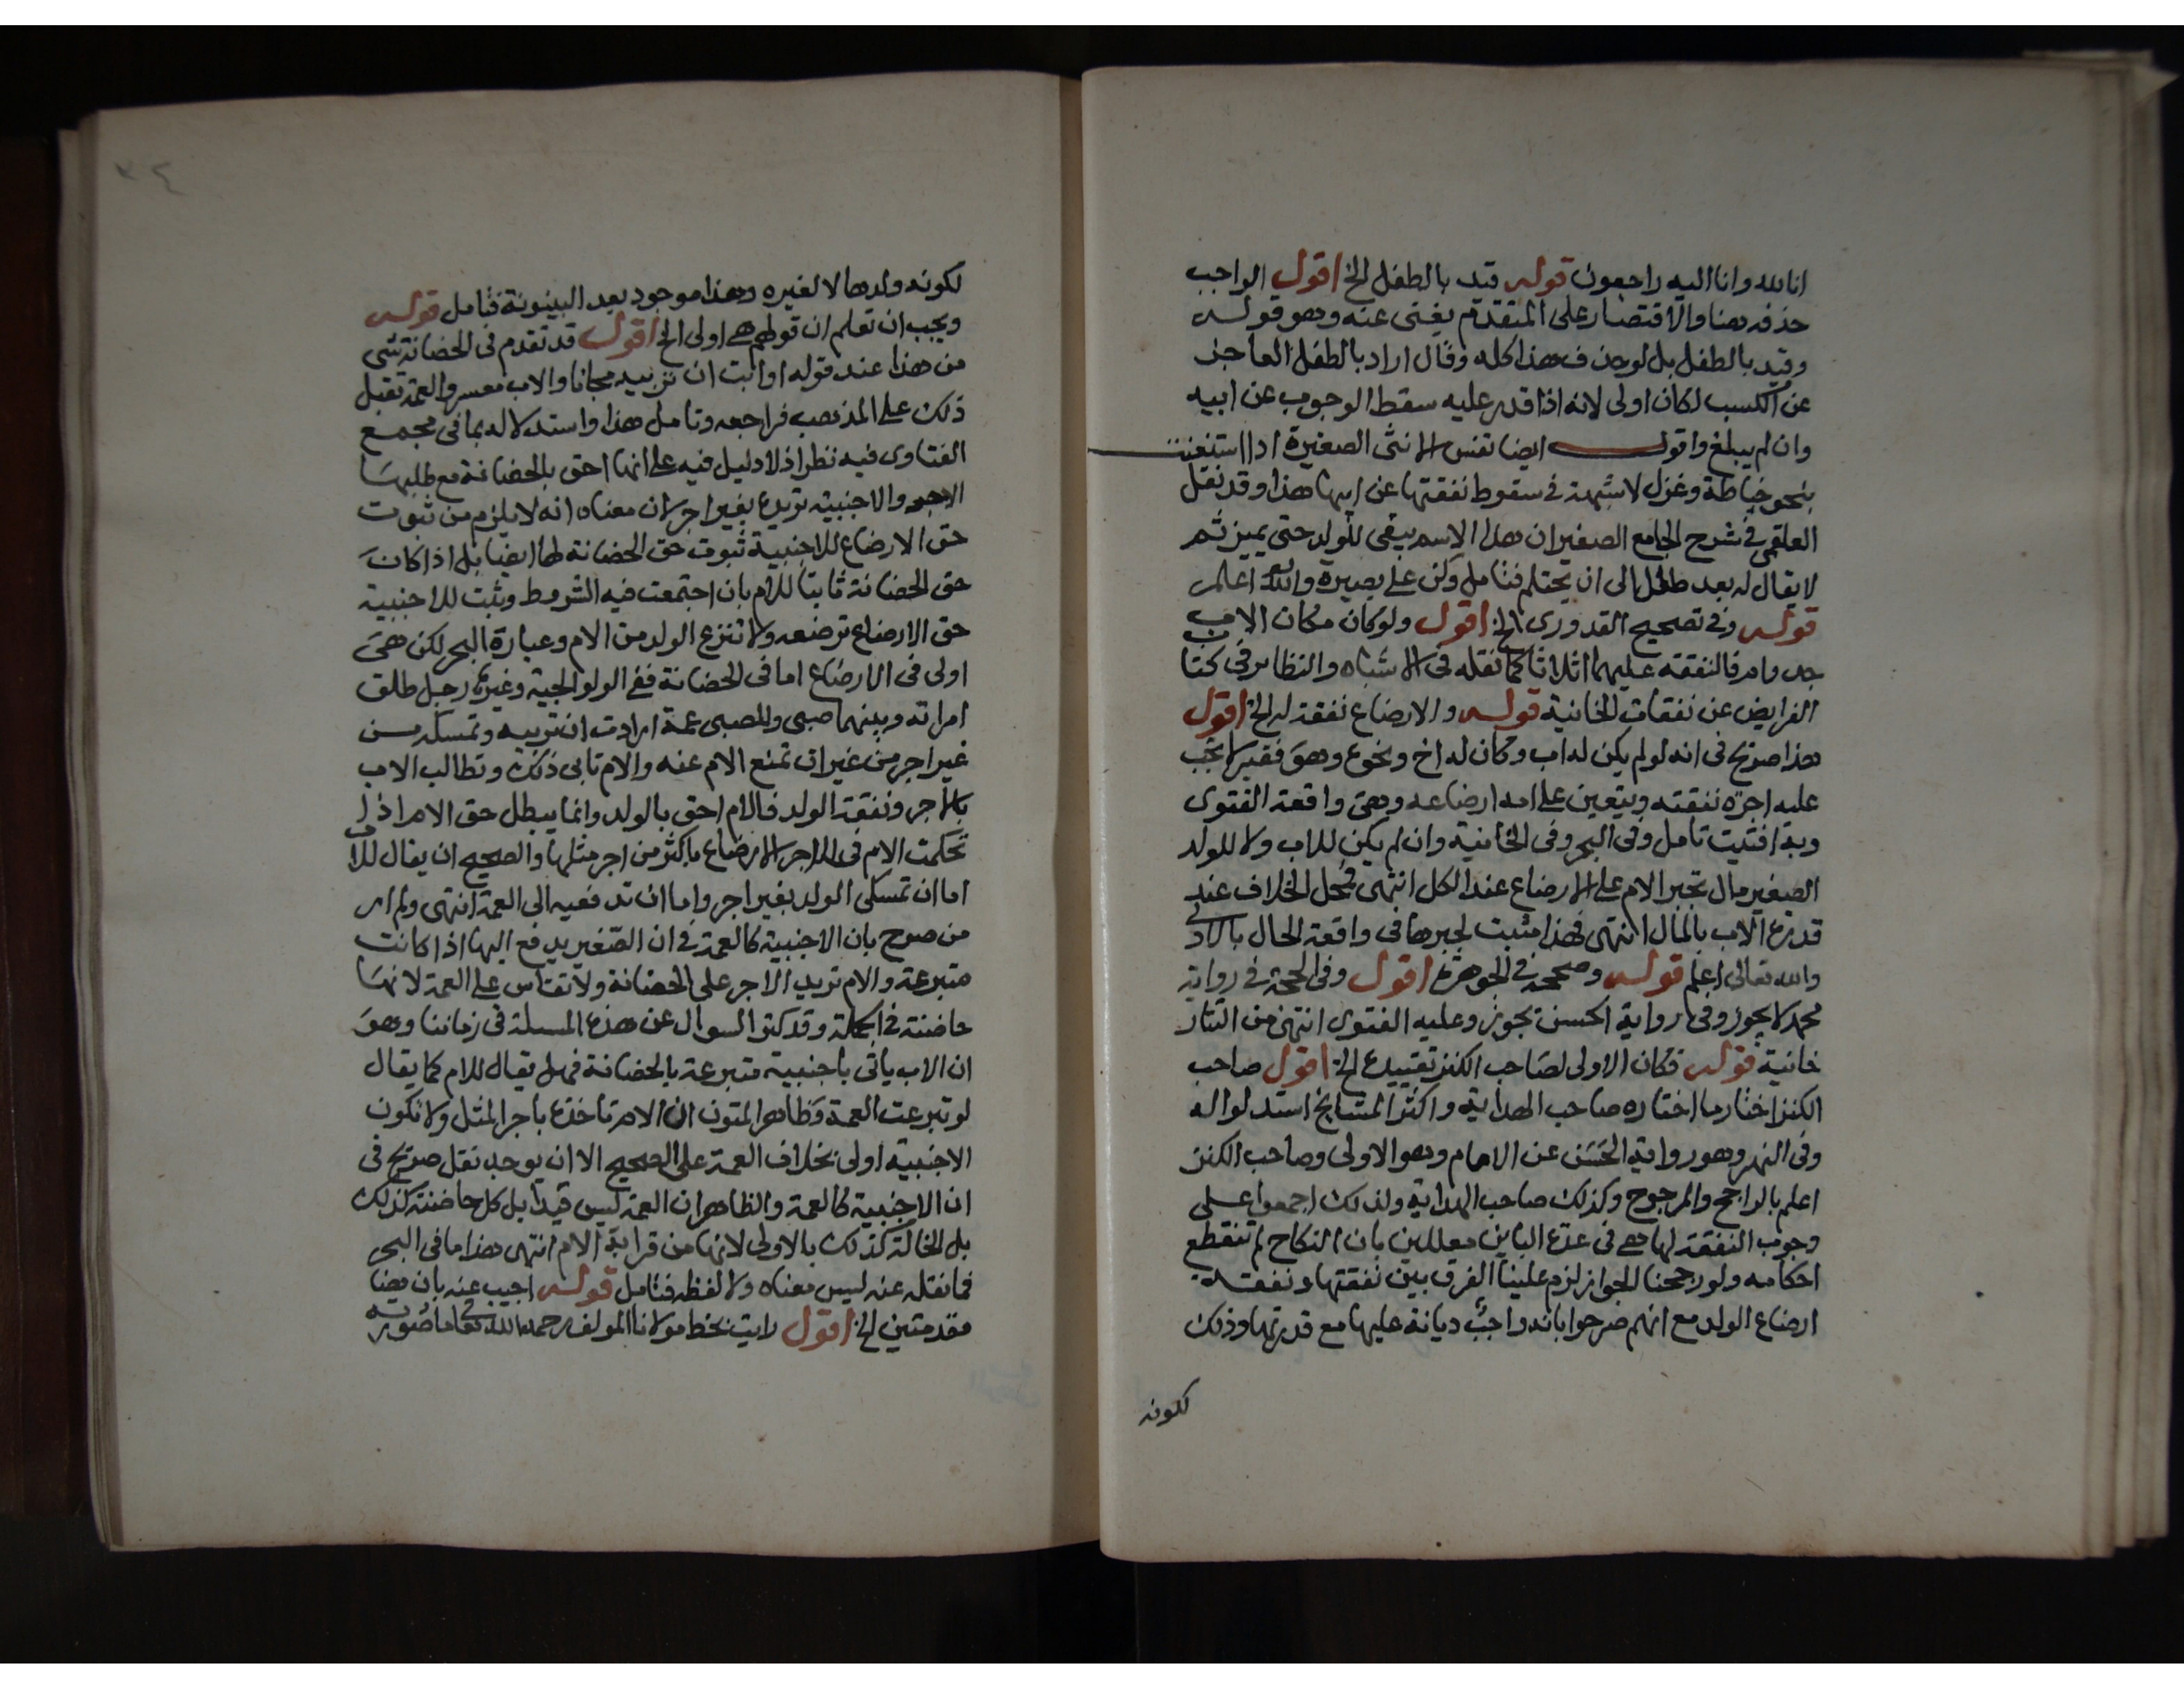 انا لله وانا اليه راجعون قوله قيد بالطفل الخ اقول الواجب
حذفه هنا والاقتصار على المتقدم يغنى عنه وهو قوله
وقيد بالطفل بل لو حذف هذا كله وقال اراد بالطفل العاجز
عن الكسب لكان اولى لانه اذا قدر عليه سقط الوجوب عن ابيه
وان لم يبلغ واقول ايضا نفس الانثى الصغيرة اذا استغنت
بنحو خياطة وغزل لا شبهة في سقوط نفقتها عن ابيها هذا وقد نقل
العلقمى في شرح الجامع الصغير ان هذا الاسم يبقى للولد حتى يميز ثم
لا يقال له بعد طفل الى ان يحتلم فتامل وكن على بصيرة والله اعلم
قوله وفي تصحيح القدورى الخ اقول ولو كان مكان الاب
جد وام فالنفقة عليهما اثلاثا كما نقله في الاشباه والنظاير في كتاب
الفرايض عن نفقات الخانية قوله والارضاع نفقة له الخ اقول
هذا صريح في انه لو لم يكن له اب وكان له اخ ونحوع وهو فقير لا تجب
عليه اجرة نفقته ويتعين على امه ارضاعه وهى واقعة الفتوى
وبه افتيت تامل وفي البحر وفى الخانية وان لم يكن للاب ولا للولد
الصغير مال تجبر الام على الارضاع عند الكل انتهى فمحل الخلاف عند
قدرة الاب بالمال انتهى فهذا مثبت لجبرها في واقعة الحال بالاولى
والله تعالى اعلم قوله وصححه في الجوهرة اقول وفى الحجة في رواية
محمد لا يجوز وفي رواية الحسن يجوز وعليه الفتوى انتهى من التتار
خانية قوله فكان الاولى لصاحب الكنز تقييده الخ اقول صاحب
الكنز اختار ما اختاره صاحب الهداية واكثر المشايخ استدلوا له
وفى النهر وهو رواية الحسن عن الامام وهو الاولى وصاحب الكنز
اعلم بالراجح والمرجوح وكذلك صاحب الهداية ولذلك اجمعوا على
وجوب النفقة لها في عدة الباين معللين بان النكاح لم تنقطع
احكامه ولو رجحنا الجواز لزم علينا الفرق بين نفقتها ونفقة
ارضاع الولد مع انهم صرحوا بانه واجب ديانة عليها مع قدرتها وذلك
لكونه
٣٤
لكونه ولدها لا لغيره وهذا موجود بعد البينونة فتامل قوله
ويجب ان تعلم ان قولهم هى اولى الخ اقول قد تقدم في الحضانة شى
من هذا عند قوله او ابت ان تربيه مجانا والاب معسر والعمة تقبل
ذلك على المذهب فراجعه وتامل هذا واستدلاله بما في مجمع
الفتاوى فيه نظر اذ لا دليل فيه على انها احق بالحضانة مع طلبها
الاجر والاجنبية تربيه بغير اجر لان معناه انه لا يلزم من ثبوت
حق الارضاع للاجنبية ثبوت حق الحضانة لها ايضا بل اذا كان
حق الحضانة ثابتا للام بان اجتمعت فيه الشروط وثبت للاجنبية
حق الارضاع ترضعه ولا تنزع الولد من الام وعبارة البحر لكن هى
اولى في الارضاع اما في الحضانة ففي الولوالجية وغيرها رجل طلق
امراته وبينهما صبى وللصبى عمة ارادت ان تربيه وتمسكه من
غير اجر من غير ان تمنع الام عنه والام تابى ذلك وتطالب الاب
بالاجر ونفقة الولد فالام احق بالولد وانما يبطل حق الام اذا
تحكمت الام في اجر الارضاع باكثر من اجر مثلها والصحيح ان يقال للام
اما ان تمسكى الولد بغير اجر واما ان تدفعيه الى العمة انتهى ولم ار
من صرح بان الاجنبية كالعمة في ان الصغير يدفع اليها اذا كانت
متبرعة والام تريد الاجر على الحضانة ولا تقاس على العمة لانها
حاضنة في الجملة وقد كثر السوال عن هذه المسلة في زماننا وهو
ان الاب ياتى باجنبية متبرعة بالحضانة فهل يقال للام كما يقال
لو تبرعت العمة وظاهر المتون ان الام تاخذه باجر المثل ولا تكون
الاجنبية اولى بخلاف العمة على الصحيح الا ان يوجد نقل صريح في
ان الاجنبية كالعمة والظاهر ان العمة ليس قيدا بل كل حاضنة كذلك
بل الخالة كذلك بالاولى لانها من قرابة الام انتهى هذا ما في البحر
فما نقله عنه ليس معناه ولا لفظه فتامل قوله اجيب عنه بان هنا
مقدمتين الخ اقول رايت بخط مولانا المولف رحمه الله تعالى ما صورته